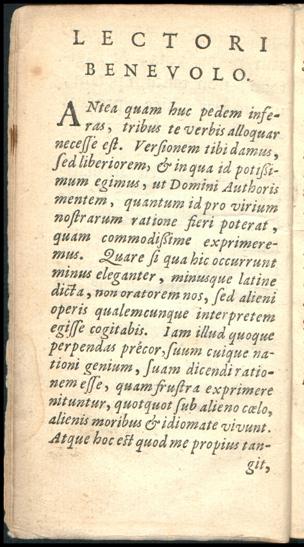 LECTORI
BENEVOLO.
ANtea quam huc pedem infe-
ras, tribus te verbis alloquar
necesse est. Versionem tibi damus,
sed liberiorem, & in qua id potissi-
mum egimus, ut Domini Authoris
mentem, quantum id pro virium
nostrarum ratione fieri poterat,
quam commodissime exprimere-
mus. Quare si qua hic occurrunt
minus eleganter, minusque latine
dicta, non oratorem nos, sed alieni
operis qualemcunque interpretem
egisse cogitabis. Iam illud quoque
perpendas précor, suum cuique na-
tioni genium, suam dicendi ratio-
nem esse, quam frustra exprimere
nituntur, quotquot sub alieno cœlo,
alienis moribus & idiomate vivunt.
Atque hoc est quod me propius tan-
git,